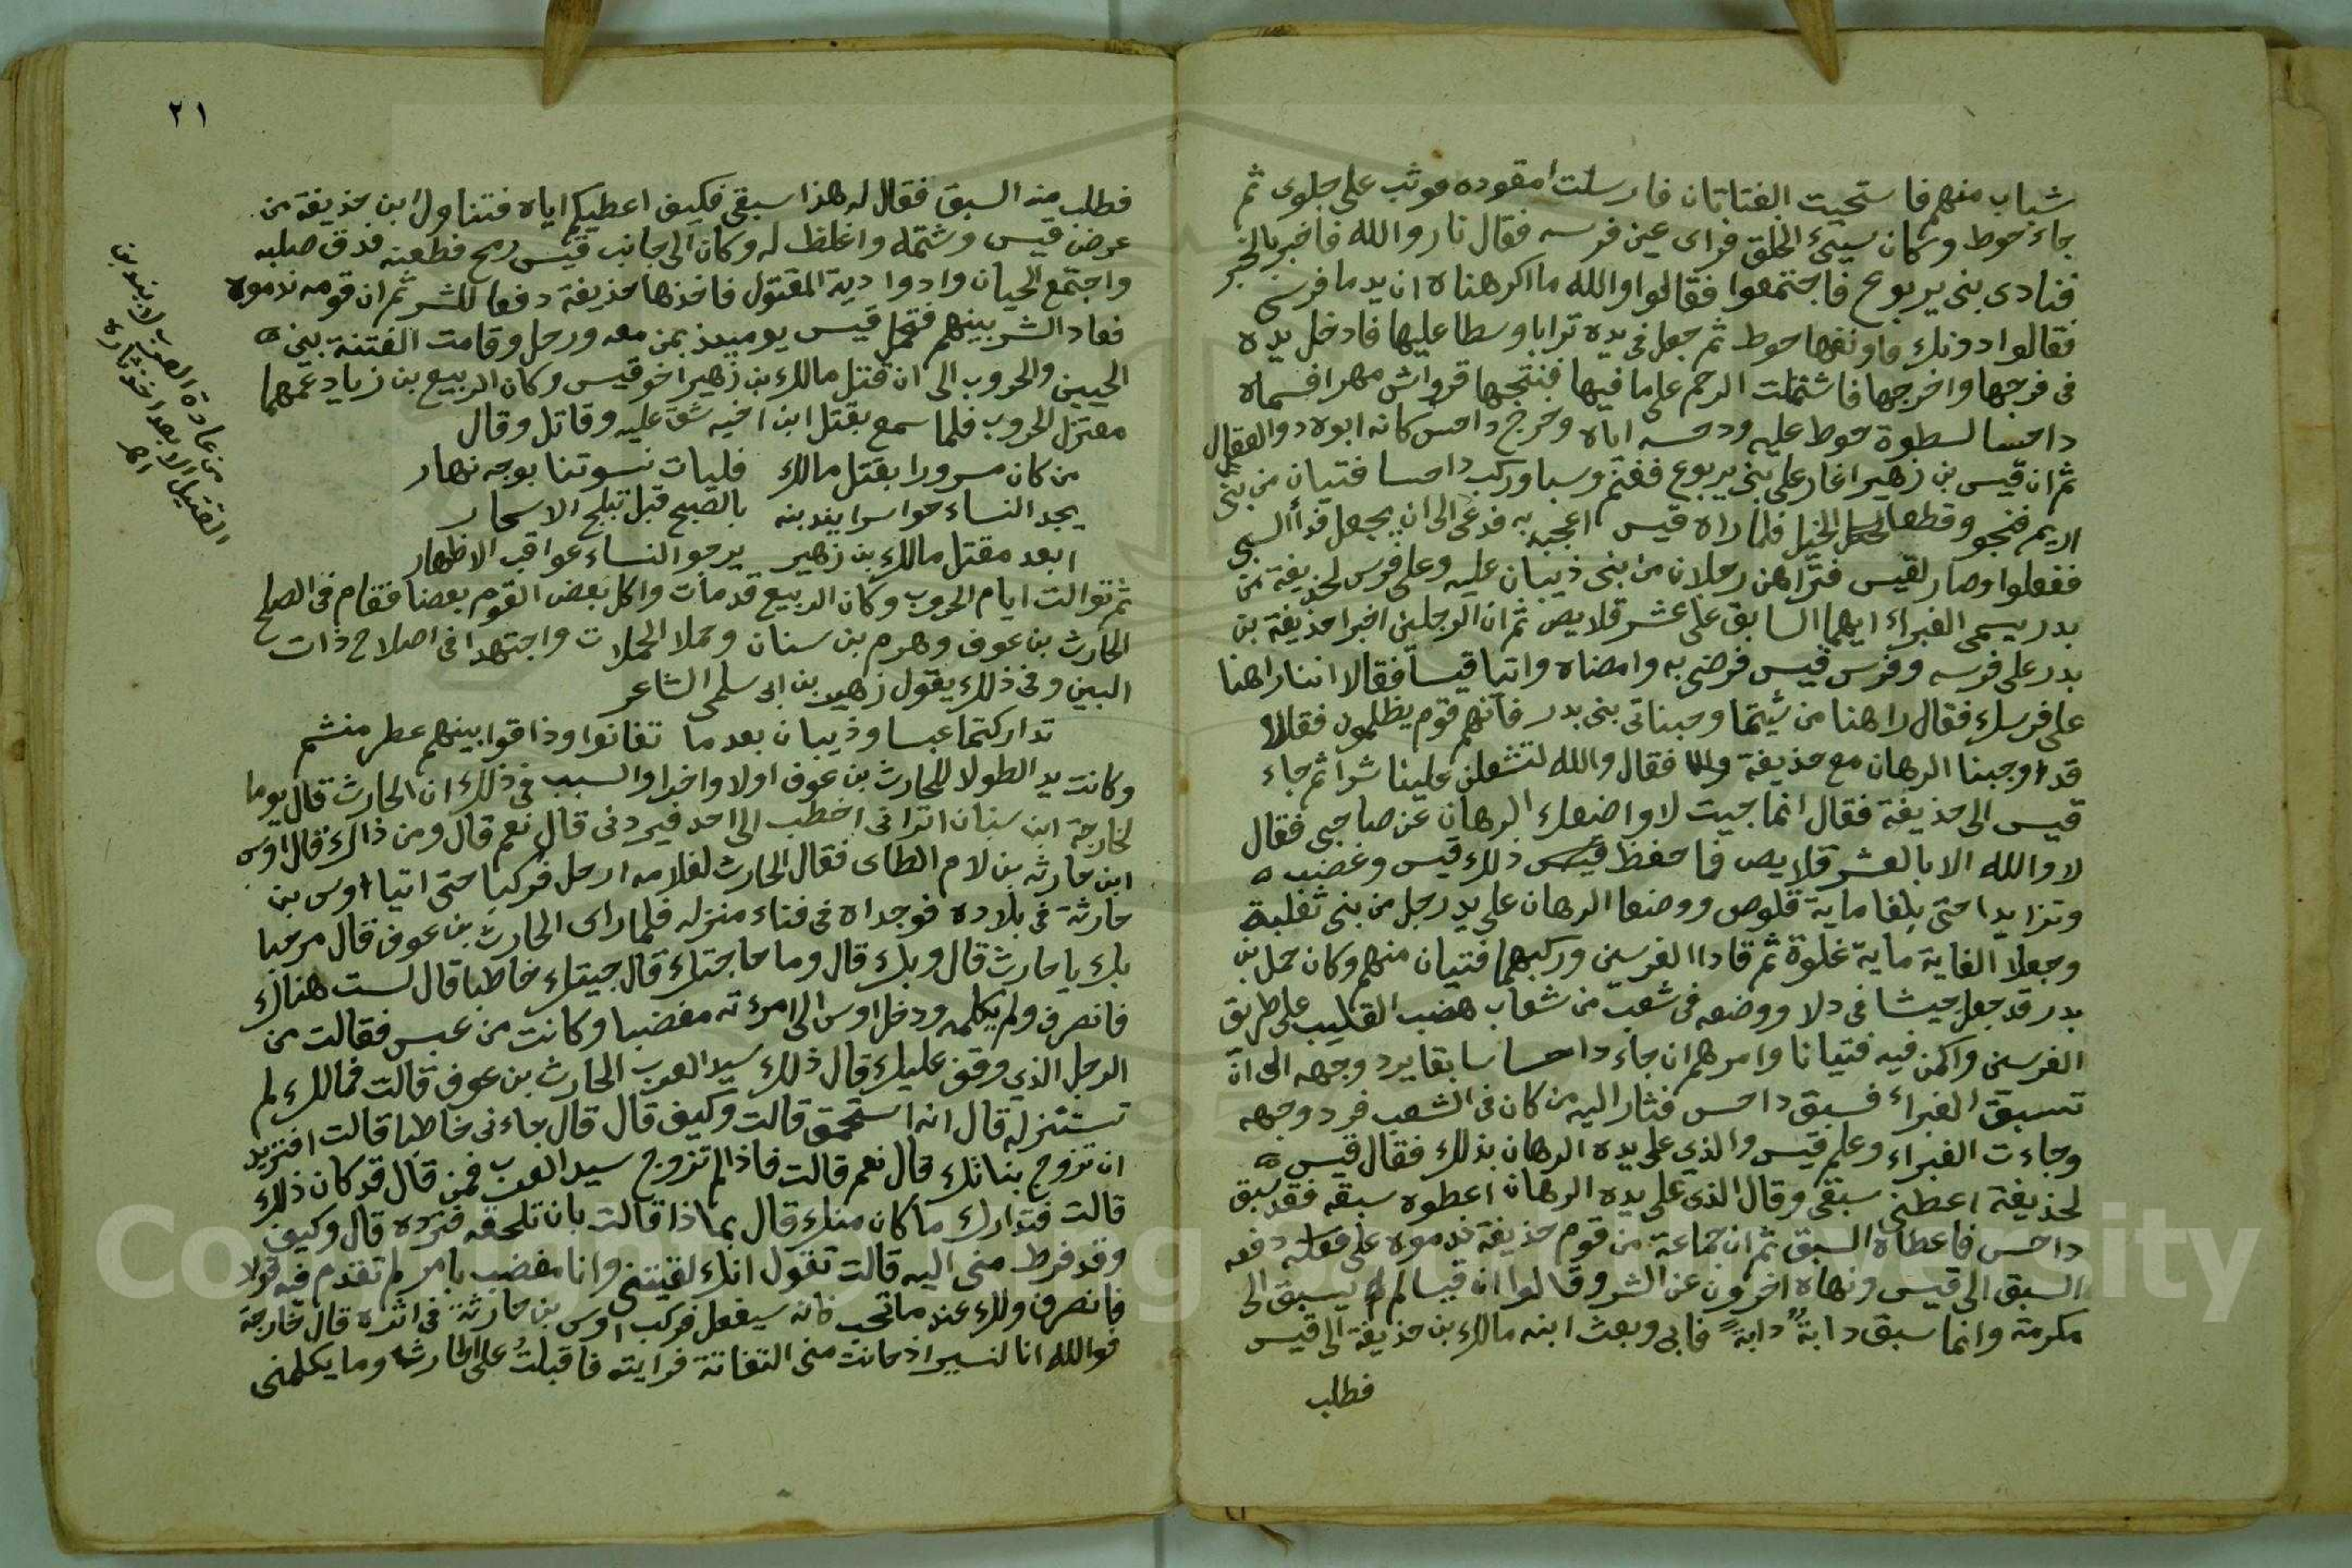 شباب منهم فاستحيت الفتاتان فارسلت امقوده فوثب على جلوى ثم
جاء حوط وكان سيئ الخلق فراى عين فرسه فقال نار والله فاخبر بالخبر
فنادى بنى يربوع فاجتمعوا فقالوا والله ما اكرهناه ان يدما فرسى
فقالوا دونك واوثقها حوط ثم جعل فى يده ترابا وسطا عليها فادخل يده
فى فرجها واخرجها فاشتملت الرحم على ما فيها فنتجها قرواش مهرا فسماه
داحسا لسطوة حوط عليه ودحسه اياه وخرج داحس كانه ابوه ذو العقال
ثم ان قيس بن زهير اغار على بنى يربوع فغنم وسبا وركب داحسا فتيان من بنى
ازيم فنجو وقطعا الخيل فلما راه قيس اعجبه به فدعى الى ان يجعل فدأ السبى
ففعلوا وصار لقيس فتراهن رجلان من بنى ذبيان عليه وعلى فرس لحذيفة بن
بدر يسمى الغبراء ايهما السابق على عشر قلايص ثم ان الرجلين اخبرا حذيفة بن
بدر على فرسه وفرس قيس فرضى به وامضاه واتيا قيسا فقالا اننا راهنا
على فرسك فقال راهنا من شيتما وجنبانى بنى بدر فانهم قوم يظلمون فقالا
قد اوجبنا الرهان مع حذيفة فقال والله لتشعلن علينا شرا ثم جاء
قيس الى حذيفة فقال انما جيت لاواضعك الرهان عن صاحبى فقال
لا والله الا بالعشر قلايص فاحفظ ذلك قيس وغضب
وتزايدا حتى بلغا ماية قلوص ووضعا الرهان على يد رجل من بنى ثعلبة
وجعلا الغاية ماية غلوة ثم قادا الفرسين وركبهما فتيان منهم وكان حمل بن
بدر قد جعل حيسا فى دلا ووضعه فى شعب من شعاب هضب القليب على طريق
الفرسين واكمن فيه فتيانا وامرهم ان جاء داحسا سابقا يرد وجهه الى ان
تسبق الغبراء فسبق داحس فثار اليه من كان فى الشعب فرد وجهه
وجاءت الغبراء وعلم قيس والذى على يده الرهان بذلك فقال قيس
لحذيفة اعطنى سبقى وقال الذى على يده الرهان اعطوه سبقه فقد سبق
داحس فاعطاه السبق ثم ان جماعة من قوم حذيفة ندموه على فعله دفعه
السبق الى قيس ونهاه اخرون عن الشر وقالوا ان قيسا لم يسبق الى
مكرمة وانما سبق دابة دابة فابى وبعث ابنه مالك بن حذيفة الى قيس
فطلب
٢١
فطلب منه السبق فقال له هذا سبقى فكيف اعطيكم اياه فتناول ابن حذيفة من
عرض قيس وشتمه واغلظ له وكان الى جانب قيس رمح فطعنه فدق صلبه
واجتمع الحيان وادوا دية المقتول فاخذها حذيفة دفعا للشر ثم ان قومه ندموه
فعاد الشر بينهم فتحمل قيس يوميذ بمن معه ورحل وقامت الفتنة بين
الحيين والحروب الى ان قتل مالك بن زهير اخو قيس وكان الربيع بن زياد عمهما
معتزل الحروب فلما سمع بقتل ابن اخيه شق عليه وقاتل وقال
من كان مسرورا بقتل مالك فليات نسوتنا بوجه نهار
يجد النساء حواسرا يندبنه بالصبح قبل تبلج الاسحار
ابعد مقتل مالك بن زهير يرجو النساء عواقب الاظهار
ثم توالت ايام الحروب وكان الربيع قد مات واكل بعض القوم بعضا فقام فى الصلح
الحارث بن عوف وهرم بن سنان وحملا الحملات واجتهدا فى اصلاح ذات
البين وفى ذلك يقول زهير بن ابى سلمى الشاعر
تداركتما عبسا وذبيان بعد ما تفانوا وذاقوا بينهم عطر منشم
وكانت يد الطولا للحارث بن عوف اولا واخرا والسبب فى ذلك ان الحارث قال يوما
لخارجة ابن سنان اترانى اخطب الى احد فيردنى قال نعم قال ومن ذاك قال اوس
ابن حارثه بن لام الطاى فقال الحارث لغلامه ارحل فركبا حتى اتيا اوس بن
حارثة فى بلاده فوجداه فى فناء منزله فلما راى الحارث بن عوف قال مرحبا
بك يا حارث قال وبك قال وما حاجتك قال جيتك خاطبا قال لست هناك
فانصرف ولم يكلمه ودخل اوس الى امرءته مغضبا وكانت من عبس فقالت من
الرجل الذى وقف عليك قال ذلك سيد العرب الحارث بن عوف قالت فمالك لم
تستنزله قال انه استحمق قالت وكيف قال قال جاءنى خاطبا قالت افتريد
ان تزوج بناتك قال نعم قالت فاذا لم تزوج سيد العرب فمن قال قد كان ذلك
قالت فتدارك ما كان منك قال بماذا قالت بان تلحقه فترده قال وكيف
وقد فرط منى اليه قالت تقول انك لقيتنى وانا مغضب بامر لم تقدم فيه قولا
فانصرف ولك عند ما تحب فانه سيفعل فركب اوس بن حارثة فى اثره قال خارجة
فوالله انا لنسير اذ حانت منى التفاتة فرايته فاقبلت على الحارث وما يكلمنى
من عادة العرب لا يندبون
القتيل الا بعد اخذ ثاره
اهـ